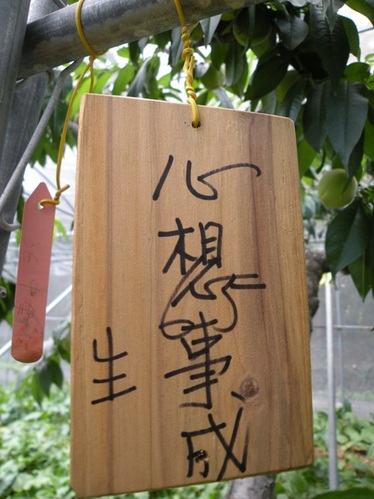 心想事成
生